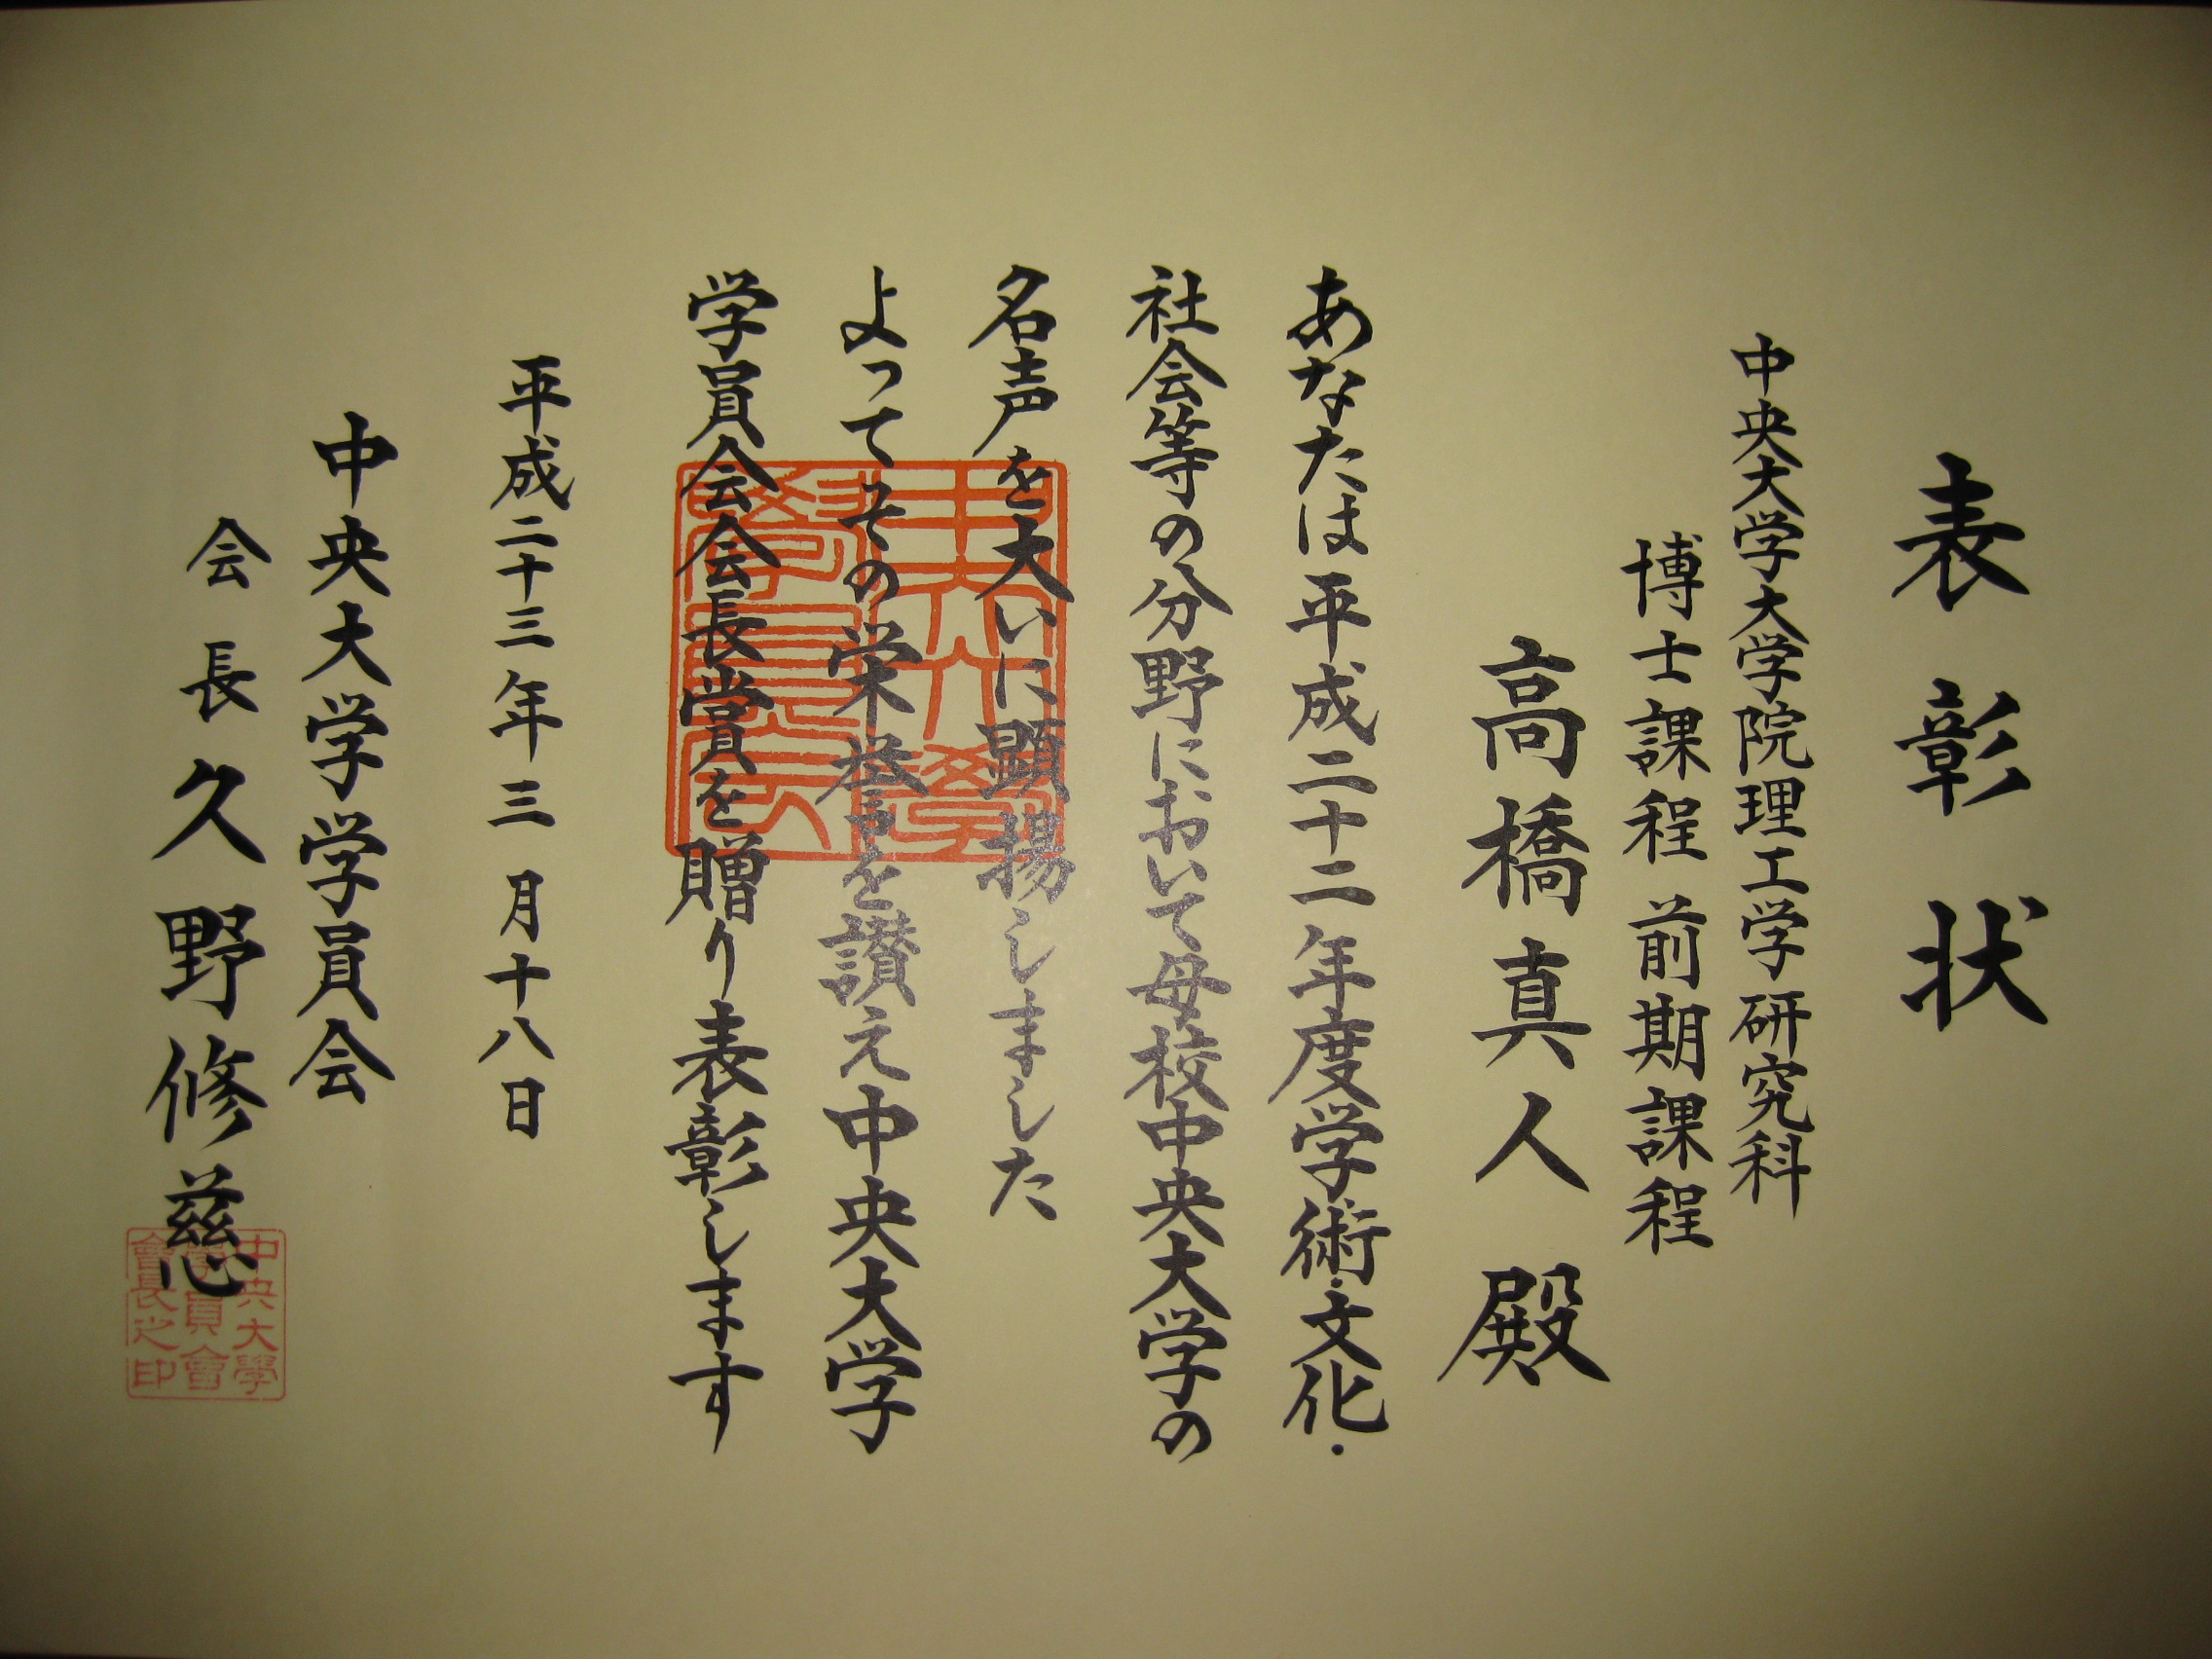 表彰状
中央大学大学院理工学研究科
博士課程前期課程
高橋真人殿
あなたは平成二十二年度学術・文化・
社会等の分野において母校中央大学の
名声を大いに顕揚しました
よってその栄誉を讃え中央大学
学員会会長賞を贈り表彰します
平成二十三年三月十八日
中央大学学員会
会長久野修慈
中央大學
學員會
會長之印